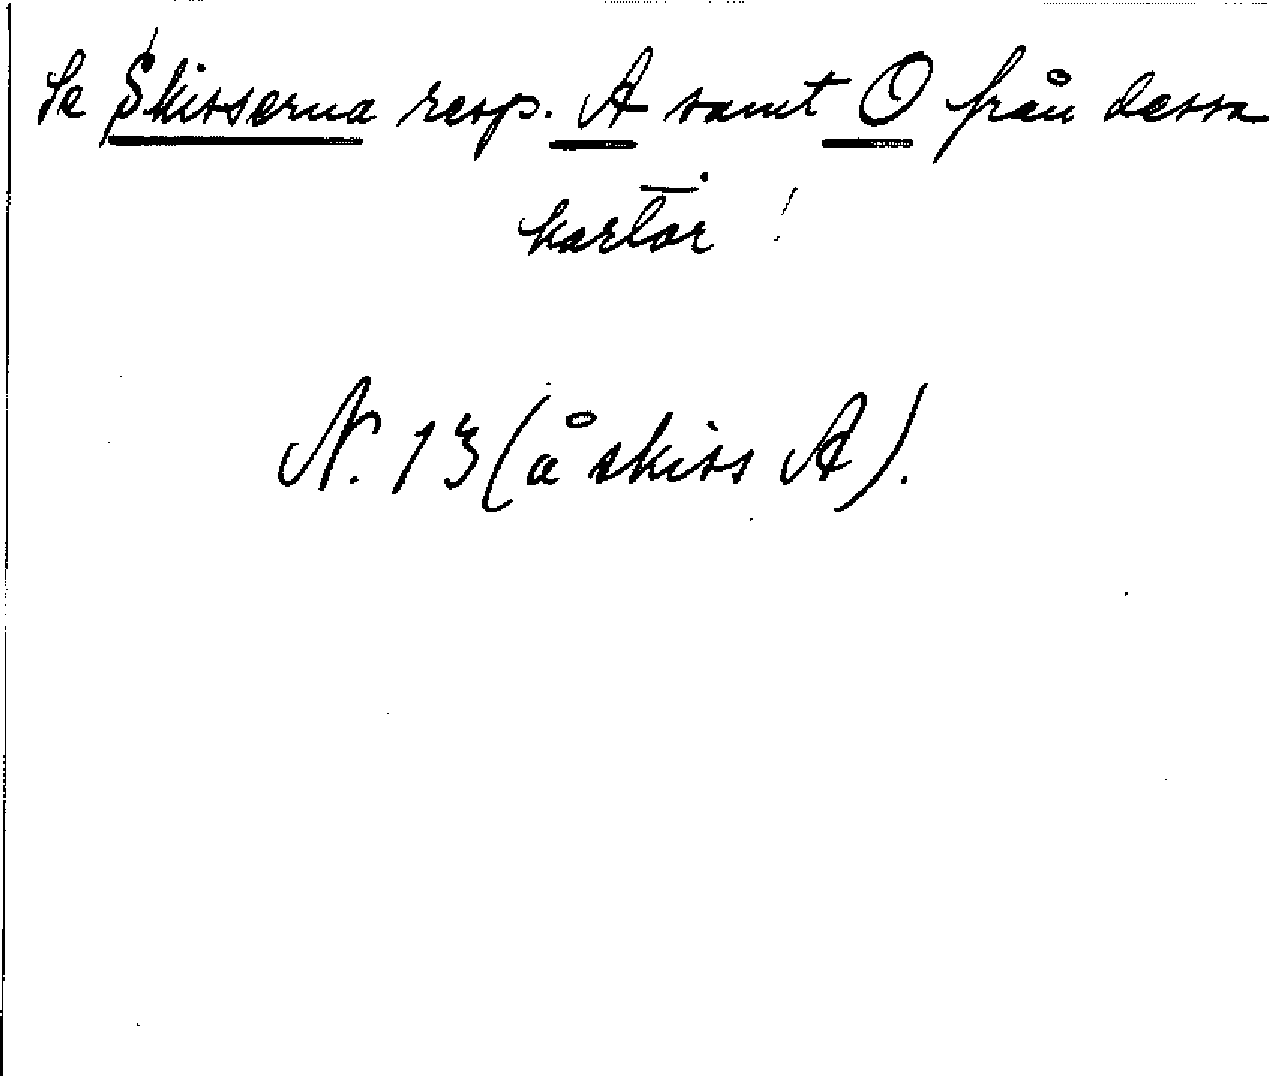 Se Skisserna resp. A samt O från dessa
kartor !
N. 13 (å skiss A).